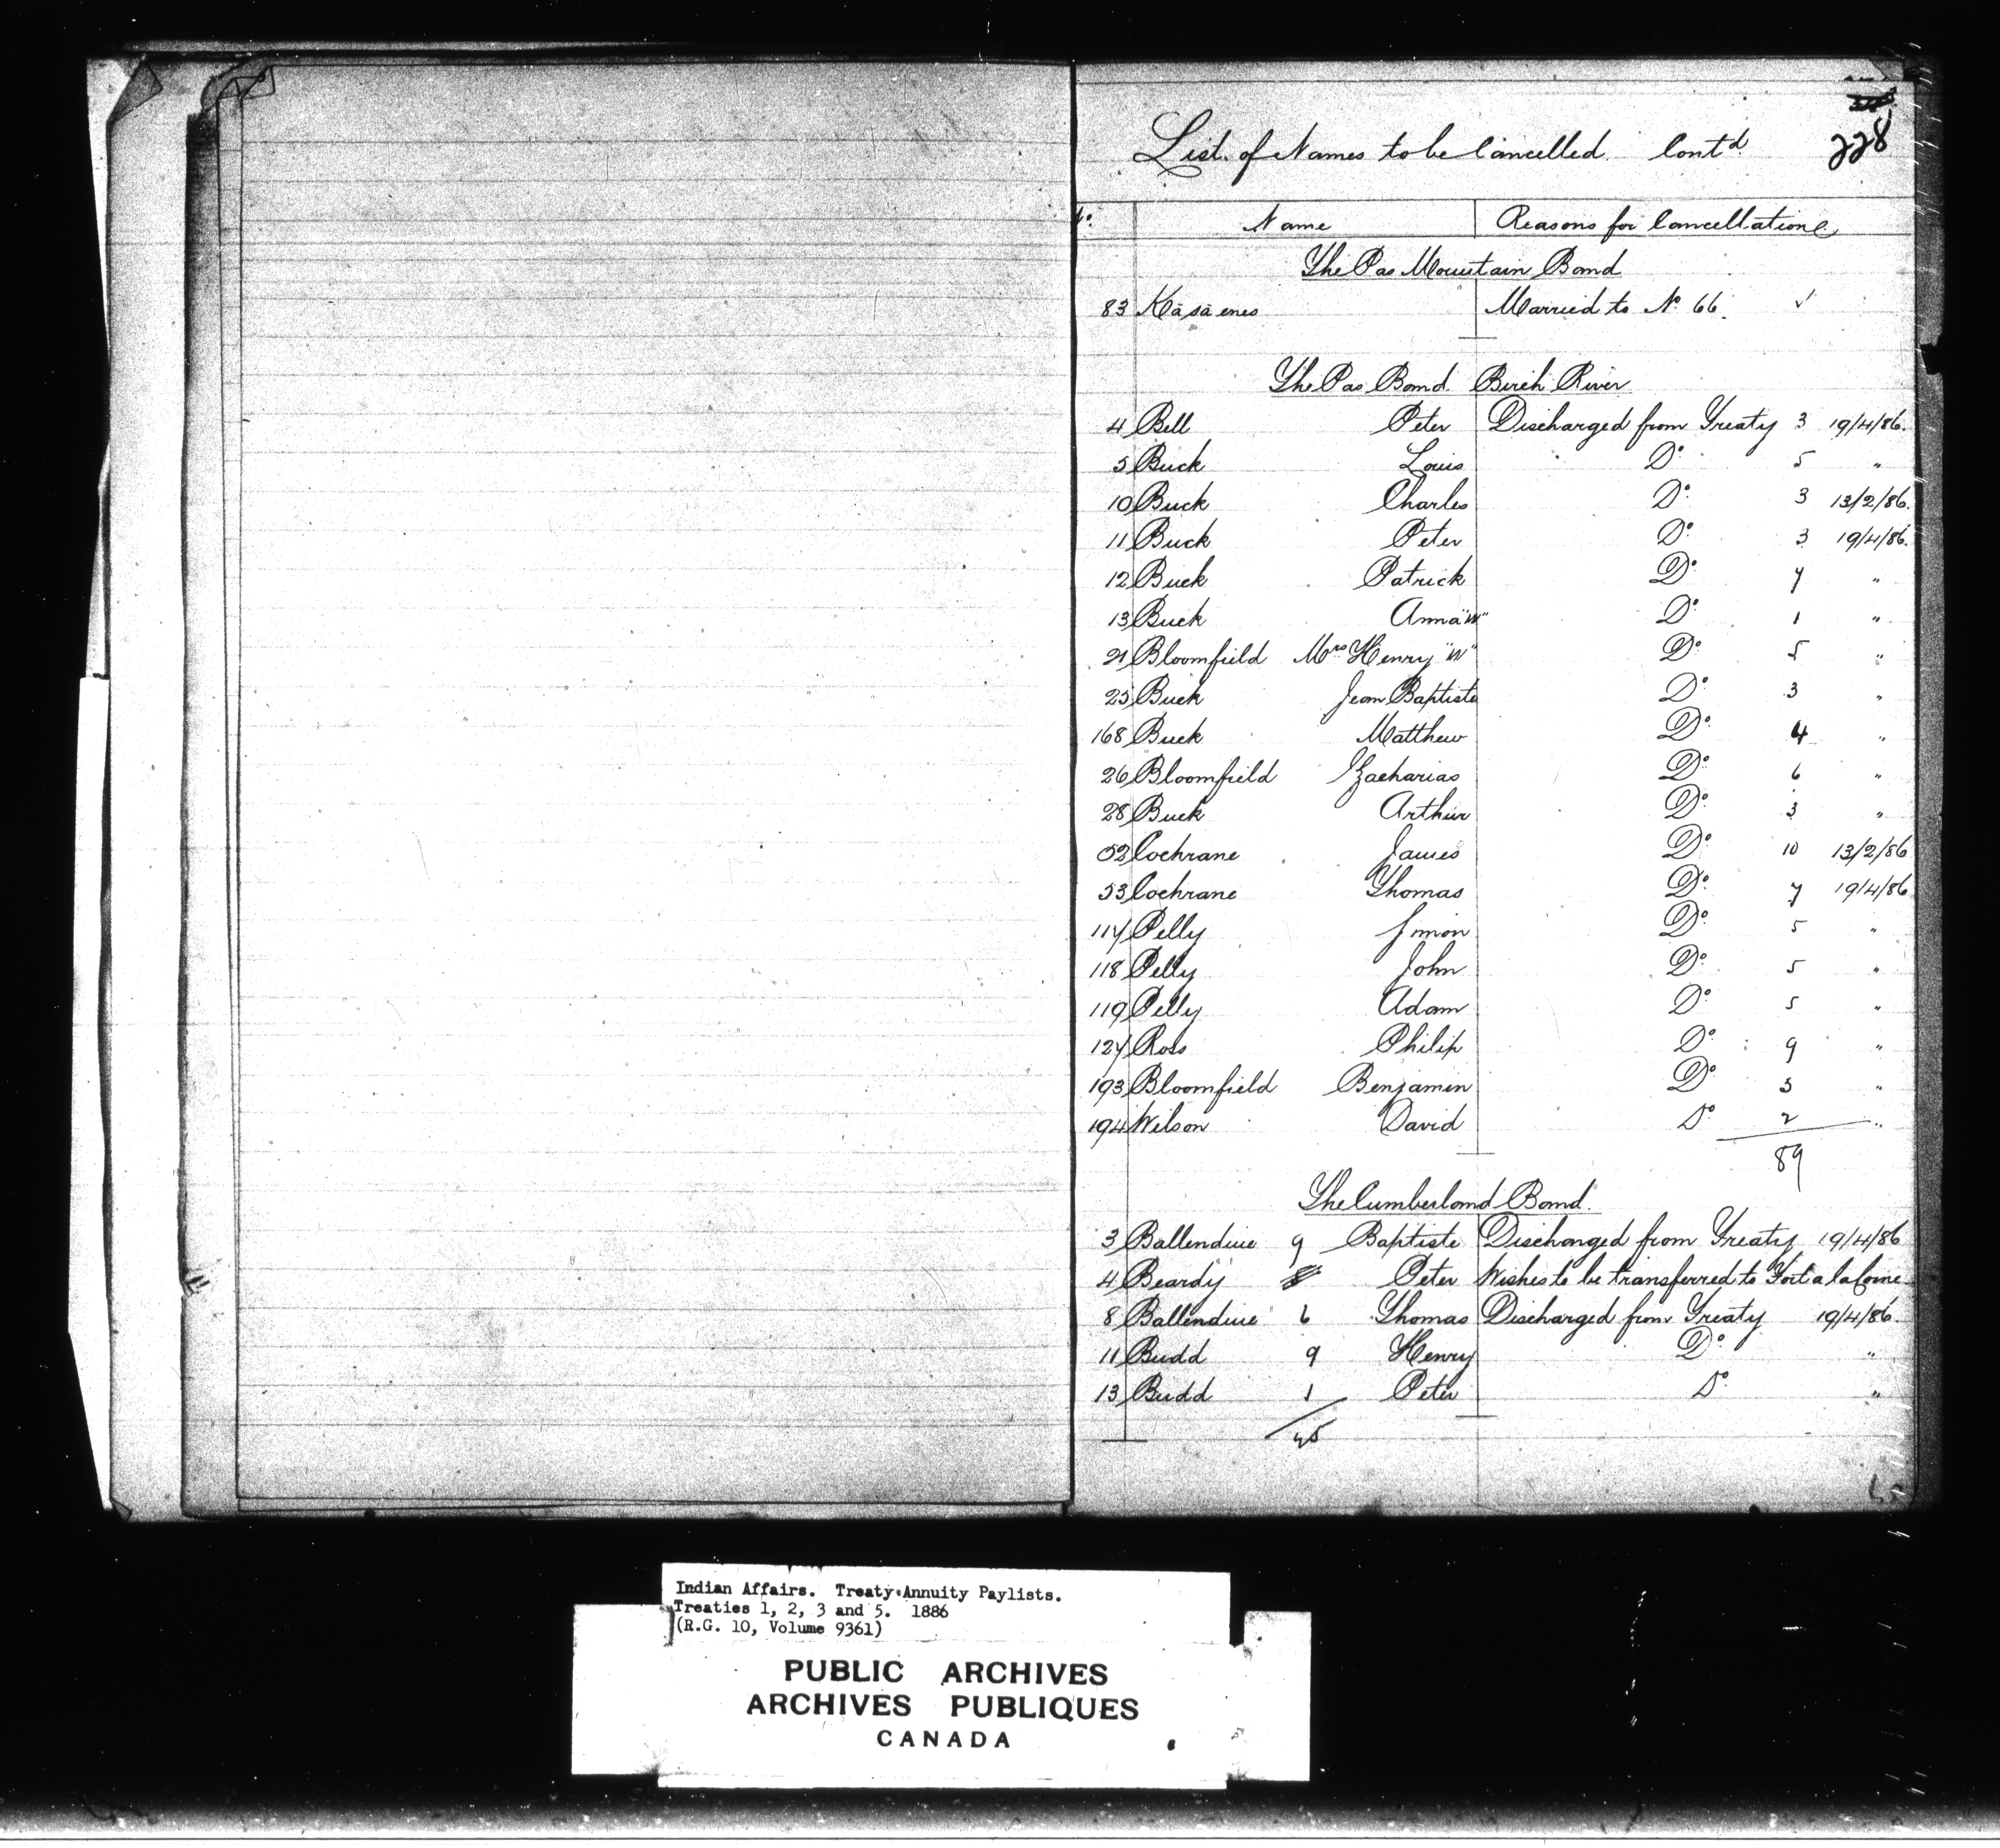 228
List of Names to be Cancelled. Contd.
No. Name Reasons for Cancellation
The Pas Mountain Band
83 Kāsāenes Married to No 66. ✓
The Pas Band Birch River
4 Bell Peter Discharged from Treaty 3 19/4/86.
5 Buck Louis Do. 5 "
10 Buck Charles Do. 3 13/2/86.
11 Buck Peter Do. 3 19/4/86.
12 Buck Patrick Do. 7 "
13 Buck Anna "W" Do. 1 "
21 Bloomfield Mrs Henry "W" Do. 5 "
25 Buck Jean Baptiste Do. 3 "
168 Buck Matthew Do. 4 "
26 Bloomfield Zacharias Do. 6 "
28 Buck Arthur Do. 3 "
52 Cochrane James Do. 10 13/2/86
53 Cochrane Thomas Do. 7 19/4/86
117 Pelly Simon Do. 5 "
118 Pelly John Do. 5 "
119 Pelly Adam Do. 5 "
127 Ross Philip Do. 9 "
193 Bloomfield Benjamin Do. 3 "
194 Wilson David Do. 2 "
89
The Cumberland Band.
3 Ballendine 9 Baptiste Discharged from Treaty 19/4/86
4 Beardy Peter Wishes to be transferred to Fort a la Corne
8 Ballendine 6 Thomas Discharged from Treaty 19/4/86.
11 Budd 9 Henry Do. "
13 Budd 1 Peter Do. "
25
Indian Affairs. Treaty Annuity Paylists.
Treaties 1, 2, 3 and 5. 1886
(R.G. 10, Volume 9361)
PUBLIC ARCHIVES
ARCHIVES PUBLIQUES
CANADA